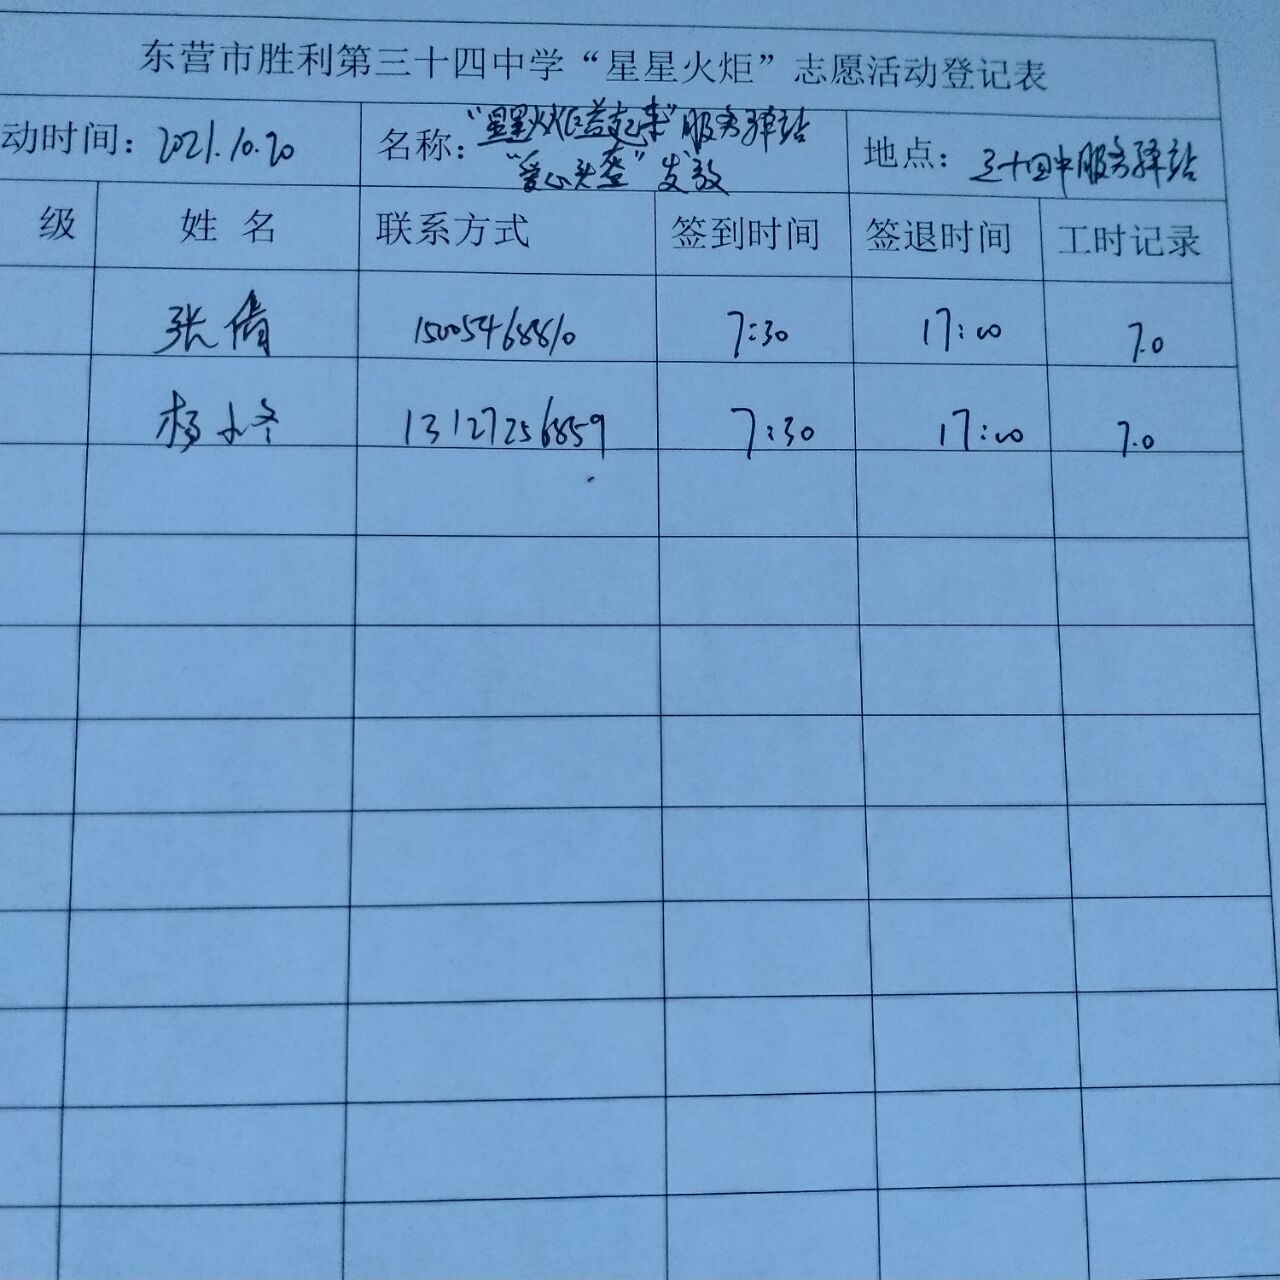 东营市胜利第三十四中学“星星火炬”志愿活动登记表
动时间：2021.10.20 名称：“星星火炬益起来”服务驿站 地点：三十四中服务驿站
“爱心头盔”发放
级 姓名 联系方式 签到时间 签退时间 工时记录
张倩 15005468810 7:30 17:00 7.0
杨小冬 13127256859 7:30 17:00 7.0